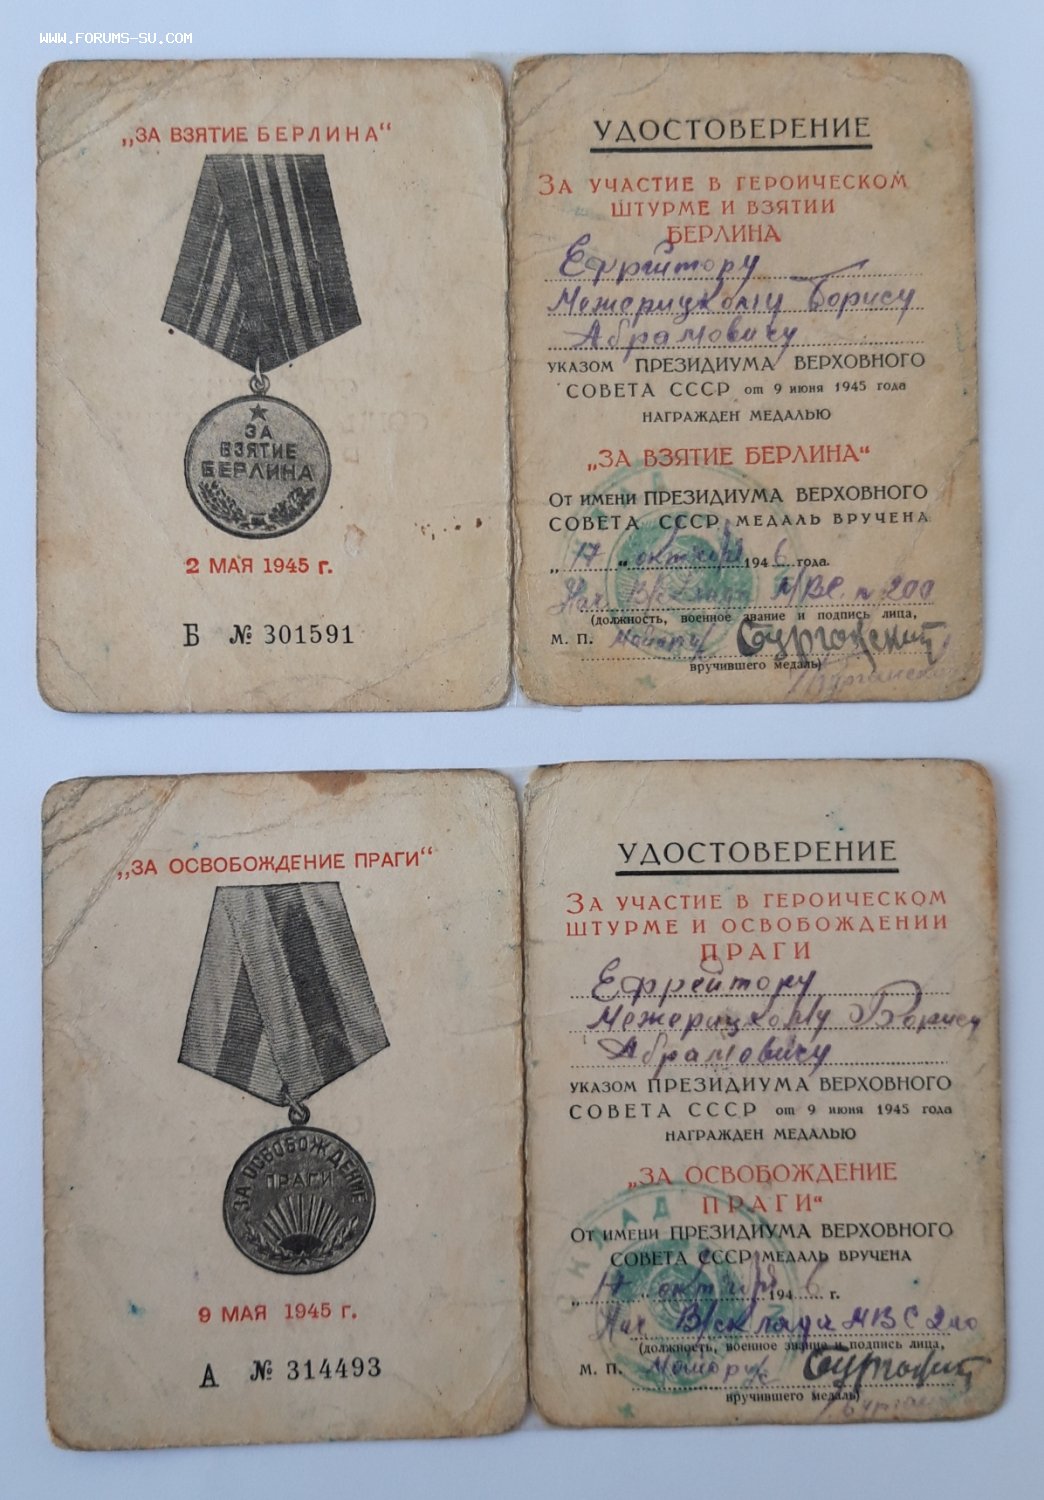 WWW.FORUMS-SU.COM
„ЗА ВЗЯТИЕ БЕРЛИНА“
ЗА
ВЗЯТИЕ
БЕРЛИНА
2 МАЯ 1945 г.
Б № 301591
УДОСТОВЕРЕНИЕ
ЗА УЧАСТИЕ В ГЕРОИЧЕСКОМ
ШТУРМЕ И ВЗЯТИИ
БЕРЛИНА
Ефрейтору
Межерицкому Борису
Абрамовичу
УКАЗОМ ПРЕЗИДИУМА ВЕРХОВНОГО
СОВЕТА СССР от 9 июня 1945 года
НАГРАЖДЕН МЕДАЛЬЮ
„ЗА ВЗЯТИЕ БЕРЛИНА“
ОТ ИМЕНИ ПРЕЗИДИУМА ВЕРХОВНОГО
СОВЕТА СССР МЕДАЛЬ ВРУЧЕНА
„17“ октября 1946 года.
Нач В/склада МВС п 200
(должность, военное звание и подпись лица,
М. П. майор
вручившего медаль)
„ЗА ОСВОБОЖДЕНИЕ ПРАГИ“
ЗА ОСВОБОЖДЕНИЕ
ПРАГИ
9 МАЯ 1945 г.
А № 314493
УДОСТОВЕРЕНИЕ
ЗА УЧАСТИЕ В ГЕРОИЧЕСКОМ
ШТУРМЕ И ОСВОБОЖДЕНИИ
ПРАГИ
Ефрейтору
Межерицкому Борису
Абрамовичу
УКАЗОМ ПРЕЗИДИУМА ВЕРХОВНОГО
СОВЕТА СССР от 9 июня 1945 года
НАГРАЖДЕН МЕДАЛЬЮ
„ЗА ОСВОБОЖДЕНИЕ
ПРАГИ“
ОТ ИМЕНИ ПРЕЗИДИУМА ВЕРХОВНОГО
СОВЕТА СССР МЕДАЛЬ ВРУЧЕНА
„17“ октября 1946 г.
Нач В/склада МВС 200
(должность, военное звание и подпись лица,
М. П. майор
вручившего медаль)